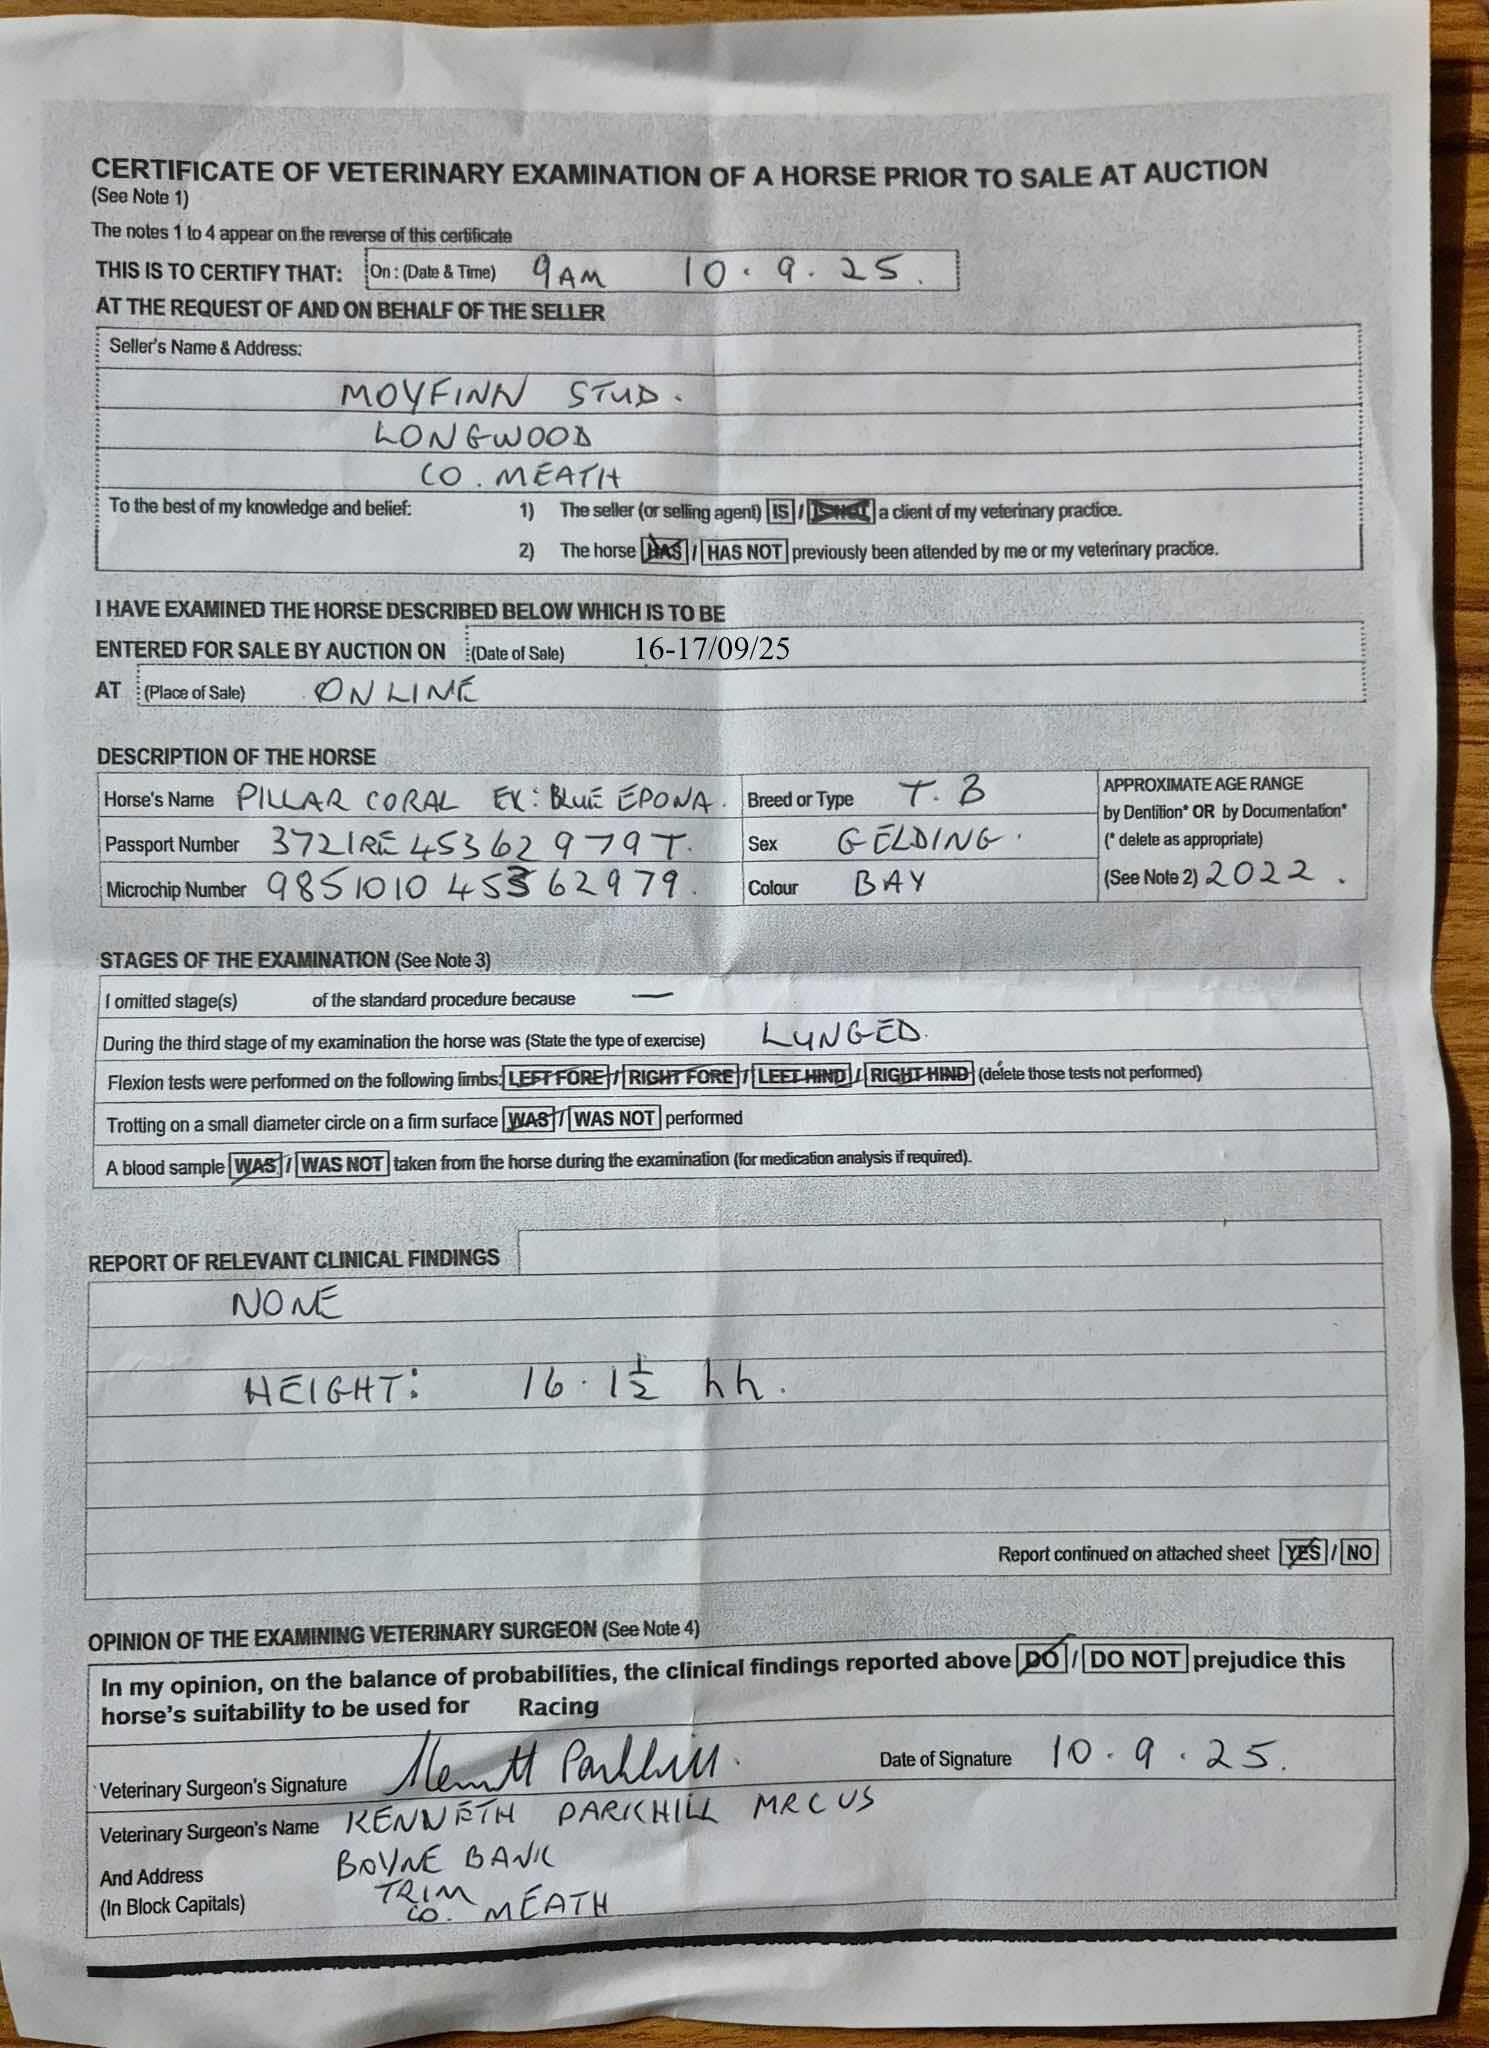 CERTIFICATE OF VETERINARY EXAMINATION OF A HORSE PRIOR TO SALE AT AUCTION
(See Note 1)
The notes 1 to 4 appear on the reverse of this certificate
THIS IS TO CERTIFY THAT: On : (Date & Time) 9AM 10.9.25.
AT THE REQUEST OF AND ON BEHALF OF THE SELLER
Seller's Name & Address:
MOYFINN STUD.
LONGWOOD
CO. MEATH
To the best of my knowledge and belief: 1) The seller (or selling agent) IS / IS NOT a client of my veterinary practice.
2) The horse HAS / HAS NOT previously been attended by me or my veterinary practice.
I HAVE EXAMINED THE HORSE DESCRIBED BELOW WHICH IS TO BE
ENTERED FOR SALE BY AUCTION ON (Date of Sale) 16-17/09/25
AT (Place of Sale) ONLINE
DESCRIPTION OF THE HORSE
Horse's Name PILLAR CORAL EX: BLUE EPONA. Breed or Type T.B APPROXIMATE AGE RANGE
by Dentition* OR by Documentation*
Passport Number 372IRE45362979T. Sex GELDING. (* delete as appropriate)
Microchip Number 985101045362979. Colour BAY (See Note 2) 2022.
STAGES OF THE EXAMINATION (See Note 3)
I omitted stage(s) of the standard procedure because —
During the third stage of my examination the horse was (State the type of exercise) LUNGED.
Flexion tests were performed on the following limbs: LEFT FORE / RIGHT FORE / LEFT HIND / RIGHT HIND (delete those tests not performed)
Trotting on a small diameter circle on a firm surface WAS / WAS NOT performed
A blood sample WAS / WAS NOT taken from the horse during the examination (for medication analysis if required).
REPORT OF RELEVANT CLINICAL FINDINGS
NONE
HEIGHT: 16.1½ hh.
Report continued on attached sheet YES / NO
OPINION OF THE EXAMINING VETERINARY SURGEON (See Note 4)
In my opinion, on the balance of probabilities, the clinical findings reported above DO / DO NOT prejudice this
horse's suitability to be used for Racing
Veterinary Surgeon's Signature Kenneth Parkhill. Date of Signature 10.9.25.
Veterinary Surgeon's Name KENNETH PARKHILL MRCVS
And Address BOYNE BANK
(In Block Capitals) TRIM
CO. MEATH